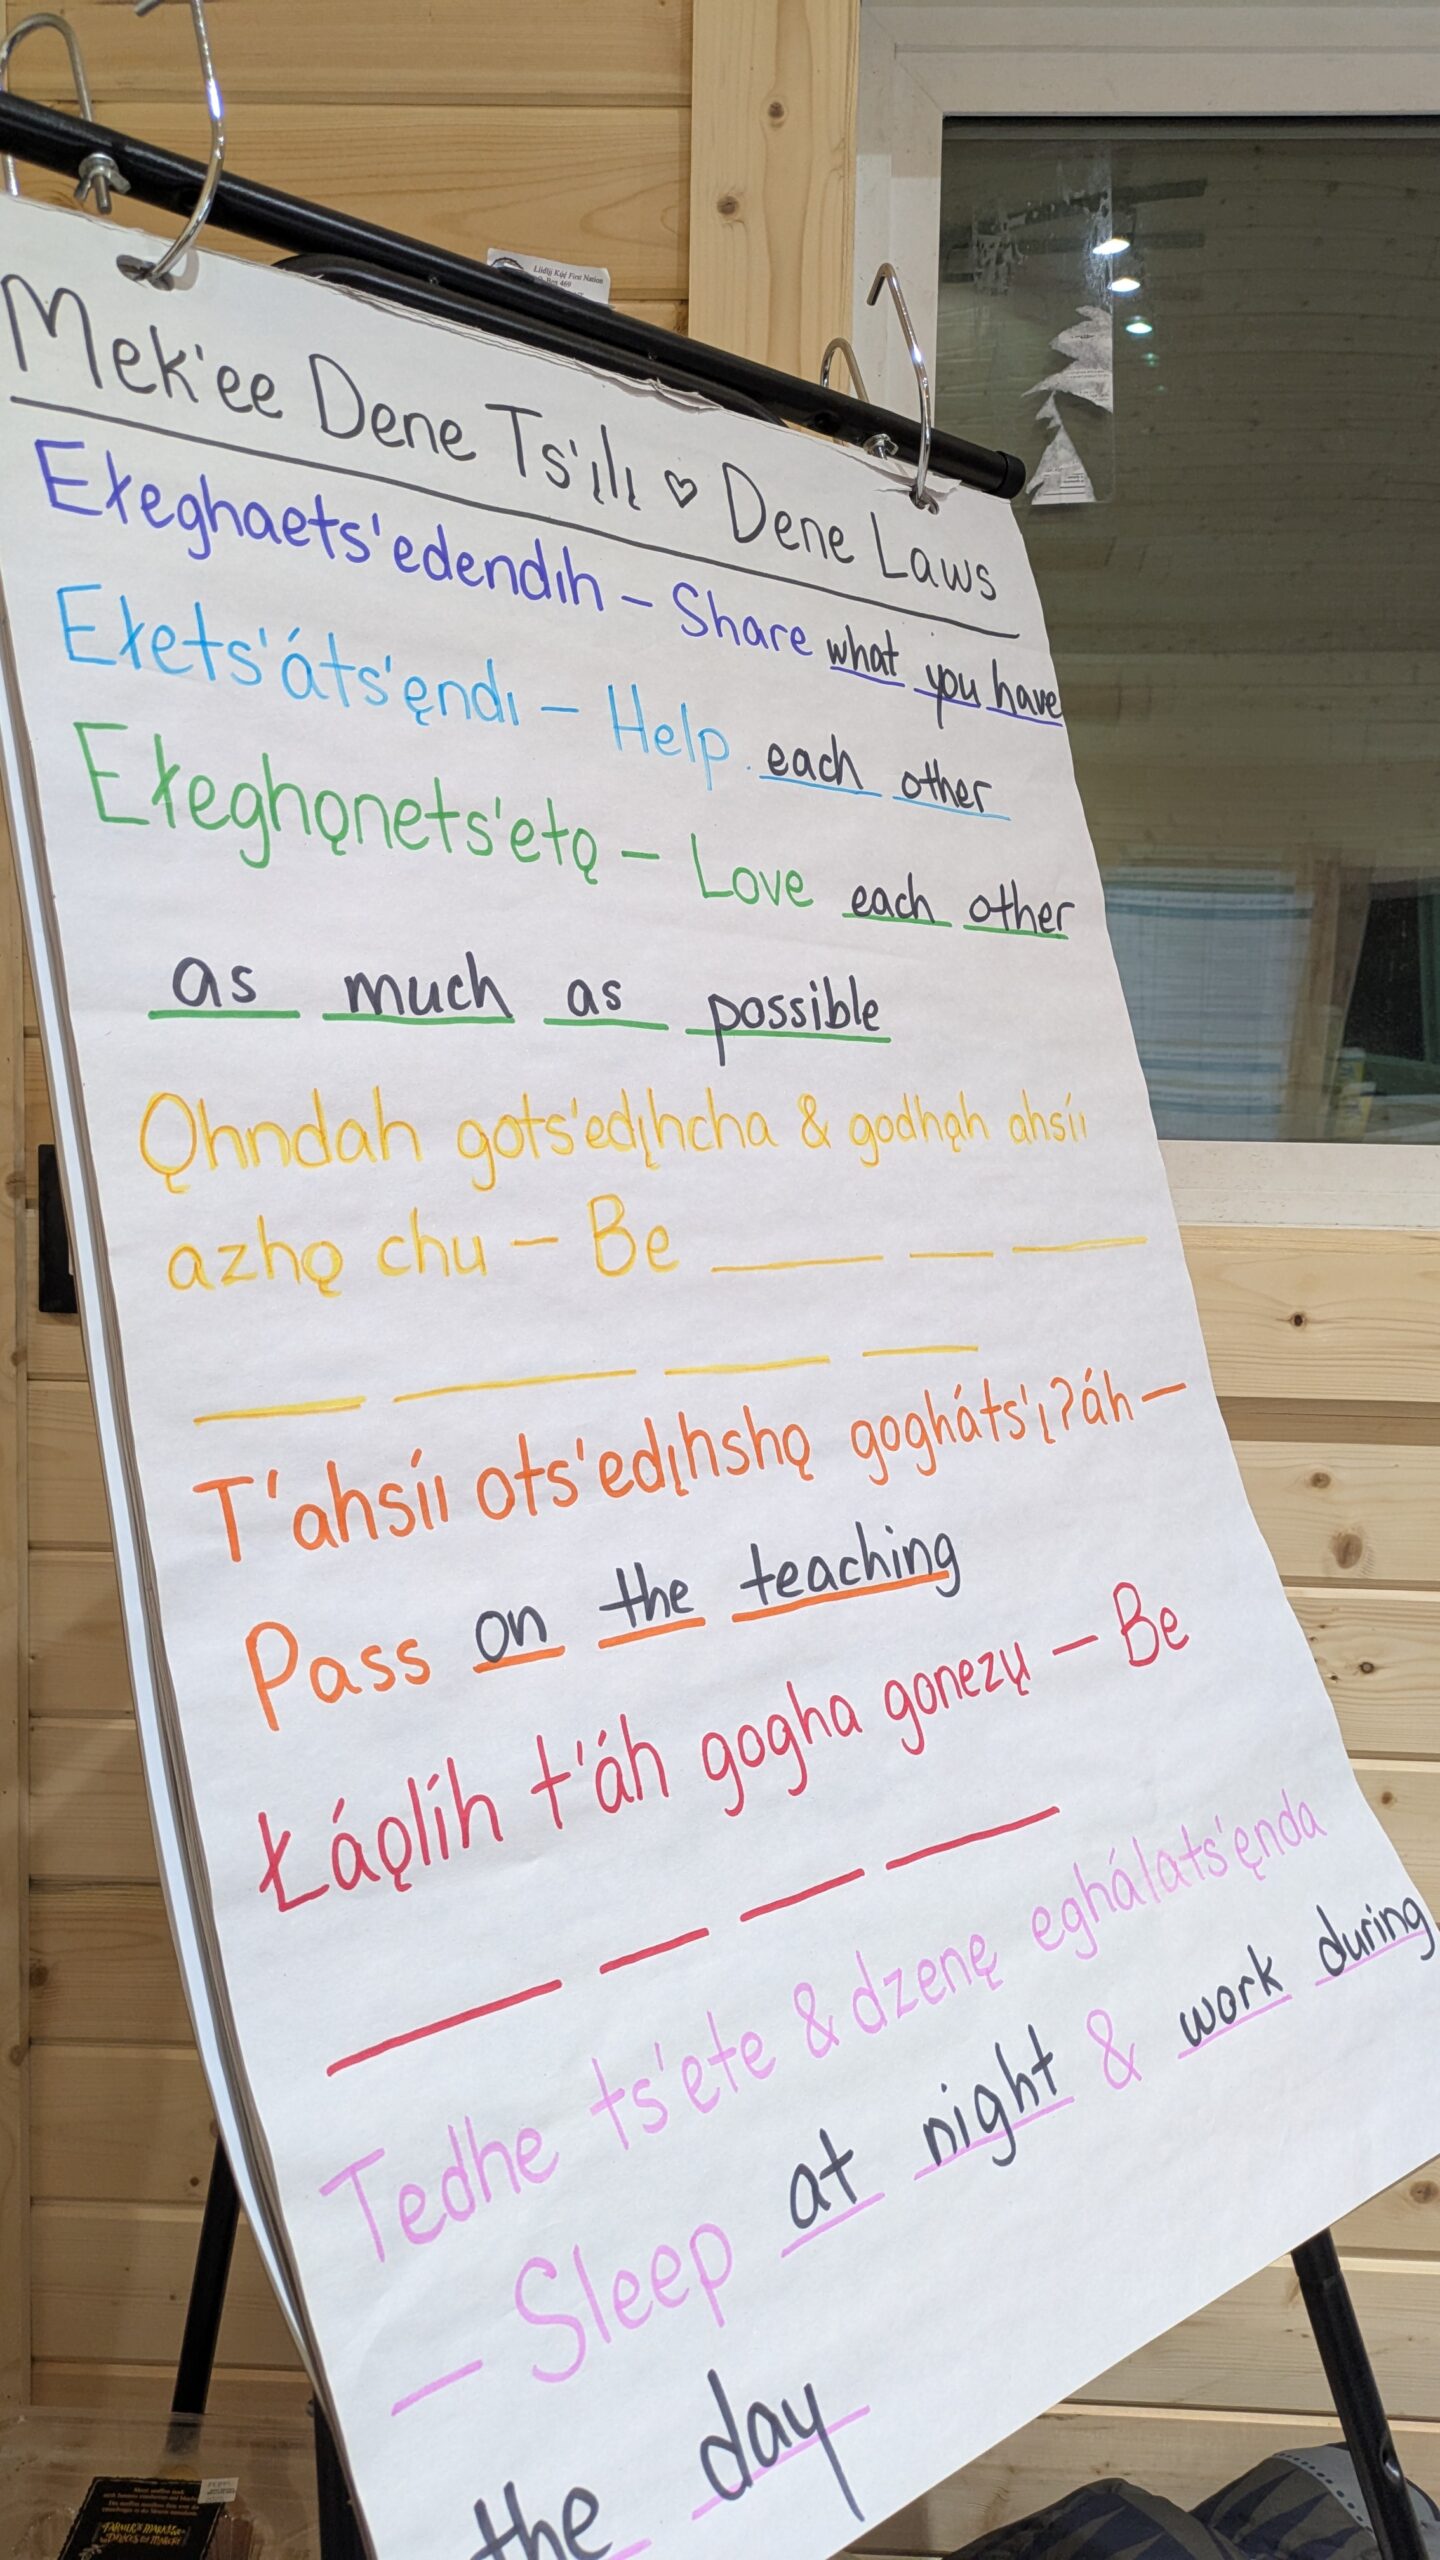 Łíídlįį Kų́ę́ First Nation
Box 469
Mek'ee Dene Ts'ılı ♡ Dene Laws
Ełeghaets'edendıh – Share what you have
Ełets'áts'ęndı – Help each other
Ełeghǫnets'etǫ – Love each other
as much as possible
Ǫhndah gots'edįhcha & godhąh ahsíı
azhǫ chu – Be ___ ___ ___
___ ___ ___ ___
T'ahsíı ots'edįhshǫ gogháts'įɁáh –
Pass on the teaching
Łáǫlíh t'áh gogha gonezų – Be
___ ___ ___ ___
Tedhe ts'ete & dzenę eghálats'ęnda
– Sleep at night & work during
the day
FARMER'S MARKET